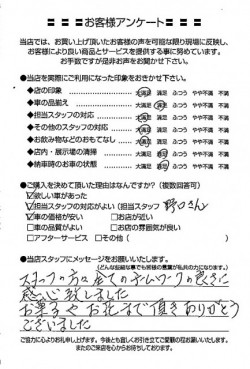 お客様アンケート
当店では、お買い上げ頂いたお客様の声を可能な限り現場に反映し、
お客様により良い商品とサービスを提供する事に努めています。
お手数ですが是非お声をお聞かせ下さい。
●当店を実際にご利用になった印象をおきかせ下さい。
◆店の印象 大満足 満足 ふつう やや不満 不満
◆車の品揃え 大満足 満足 ふつう やや不満 不満
◆担当スタッフの対応 大満足 満足 ふつう やや不満 不満
◆その他のスタッフの対応 大満足 満足 ふつう やや不満 不満
◆お飲み物などのおもてなし 大満足 満足 ふつう やや不満 不満
◆店内・展示場の清掃 大満足 満足 ふつう やや不満 不満
◆納車時のお車の状態 大満足 満足 ふつう やや不満 不満
●ご購入を決めて頂いた理由はなんですか？(複数回答可)
欲しい車があった
担当スタッフの対応がよい(担当スタッフ 野口さん)
車の価格が安い □お店が近い
□車の品質がよい □お店の雰囲気が良い
□アフターサービス □その他( )
●当店スタッフにメッセージをお願いいたします。
(どんな些細な事でも皆様の意見が私共の力になります)
スタッフの方々全てのチームワークの良さに
感心致しました
お菓子やお花まで頂きありがとう
ございました
ご協力に心よりお礼申し上げます。今後とも宜しくお引き立てご愛顧の程お願いいたします。
またのご来店を心からお待ちしております。